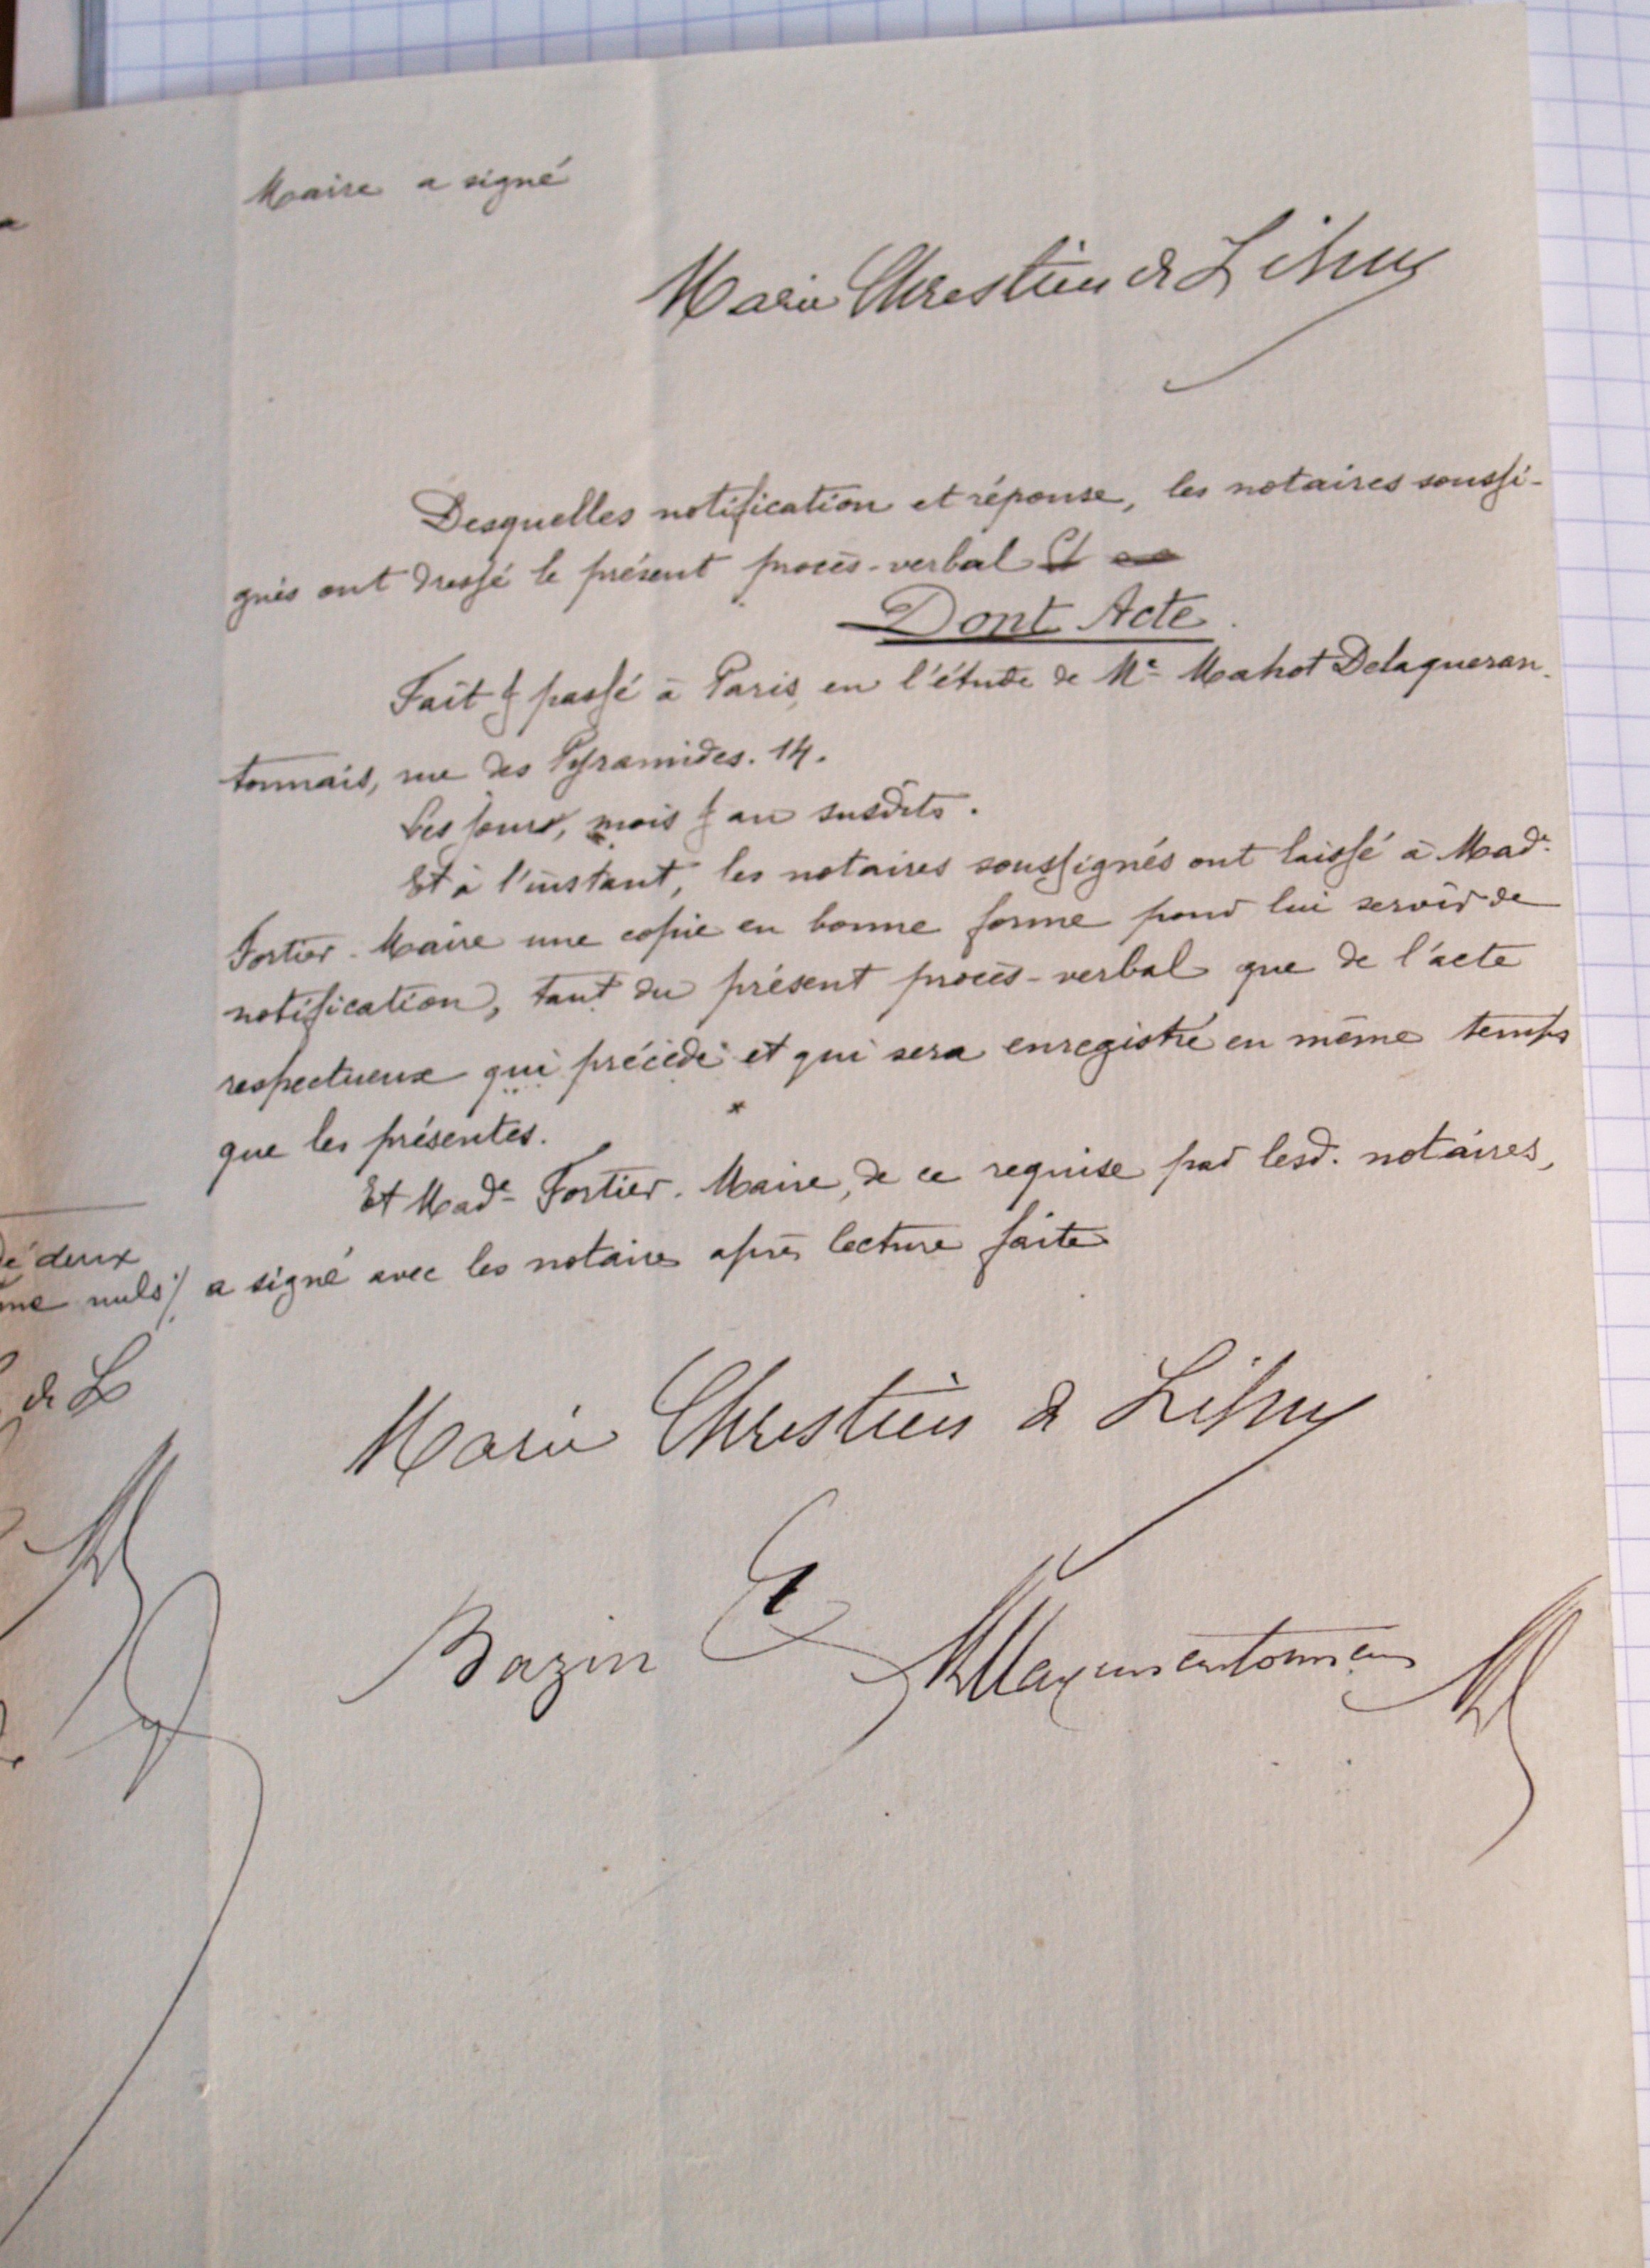 Maire a signé
Marie Chrestien de Lihus
Desquelles notification et réponse, les notaires soussi-
gnés ont dressé le présent procès-verbal
Dont Acte.
Fait & passé à Paris, en l'étude de Me Mahot Delaqueran-
tonnais, rue des Pyramides. 14.
Les jour, mois & an susdits.
Et à l'instant, les notaires soussignés ont laissé à Made
Fortier-Maire une copie en bonne forme pour lui servir de
notification, tant du présent procès-verbal que de l'acte
respectueux qui précède et qui sera enregistré en même temps
que les présentes.
Et Made Fortier-Maire, de ce requise par lesd. notaires,
a signé avec les notaires après lecture faite
Marie Chrestien de Lihus
Bazin
deux
nuls
de L